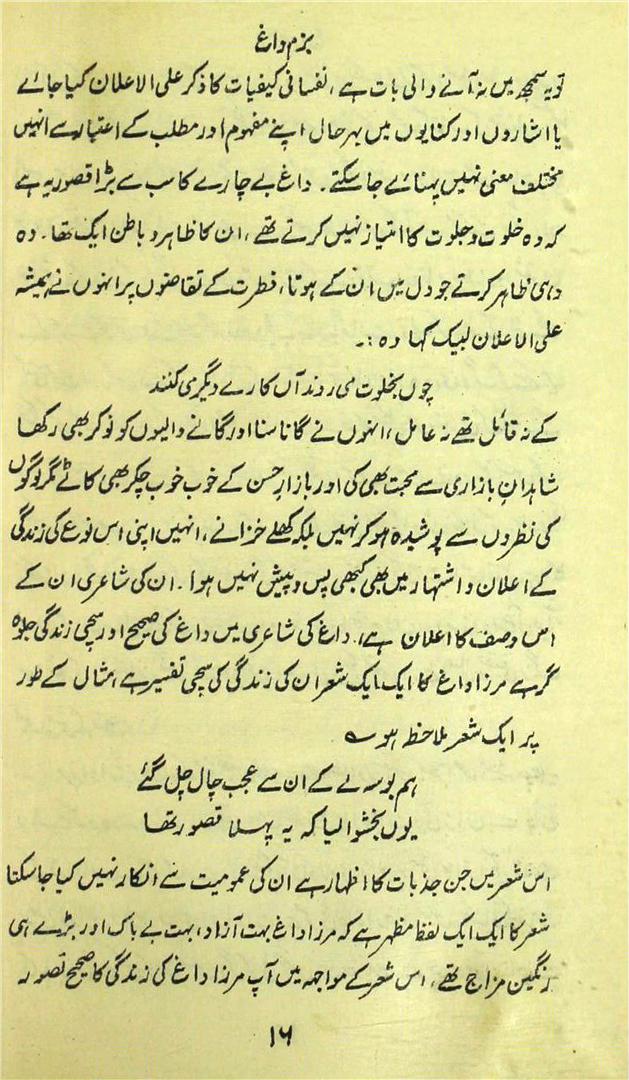 بزم داغ
تو یہ سمجھ میں نہ آنے والی بات ہے، نفسانی کیفیات کا ذکر علی الاعلان کیا جائے
یا اشاروں اور کنایوں میں بہرحال اپنے مفہوم اور مطلب کے اعتبار سے انہیں
مختلف معنی نہیں پہنائے جا سکتے۔ داغ بے چارے کا سب سے بڑا قصور یہ ہے
کہ وہ خلوت و جلوت کا امتیاز نہیں کرتے تھے، ان کا ظاہر و باطن ایک تھا۔ وہ
وہی ظاہر کرتے جو دل میں ان کے ہوتا، فطرت کے تقاضوں پر انہوں نے ہمیشہ
علی الاعلان لبیک کہا وہ :۔
چوں بخلوت می روند آں کارے دیگری کنند
کے نہ قائل تھے نہ عامل، انہوں نے گانا سنا اور گانے والیوں کو نوکر بھی رکھا
شاہدانِ بازاری سے محبت بھی کی اور بازارِ حسن کے خوب خوب چکر بھی کاٹے مگر لوگوں
کی نظروں سے پوشیدہ ہو کر نہیں بلکہ کھلے خزانے، انہیں اپنی اس نوع کی زندگی
کے اعلان و اشتہار میں بھی کبھی پس و پیش نہیں ہوا۔ ان کی شاعری ان کے
اس وصف کا اعلان ہے، داغ کی شاعری میں داغ کی صحیح اور سچی زندگی جلوہ
گر ہے مرزا داغ کا ایک ایک شعر ان کی زندگی کی سچی تفسیر ہے، مثال کے طور
پر ایک شعر ملاحظہ ہو ؎
ہم بوسہ لے کے ان سے عجب چال چل گئے
یوں بخشوا لیا کہ یہ پہلا قصور تھا
اس شعر میں جن جذبات کا اظہار ہے ان کی عمومیت سے انکار نہیں کیا جا سکتا
شعر کا ایک ایک لفظ مظہر ہے کہ مرزا داغ بہت آزاد، بہت بے باک اور بڑے ہی
رنگین مزاج تھے، اس شعر کے مواجہہ میں آپ مرزا داغ کی زندگی کا صحیح تصور
۱۶